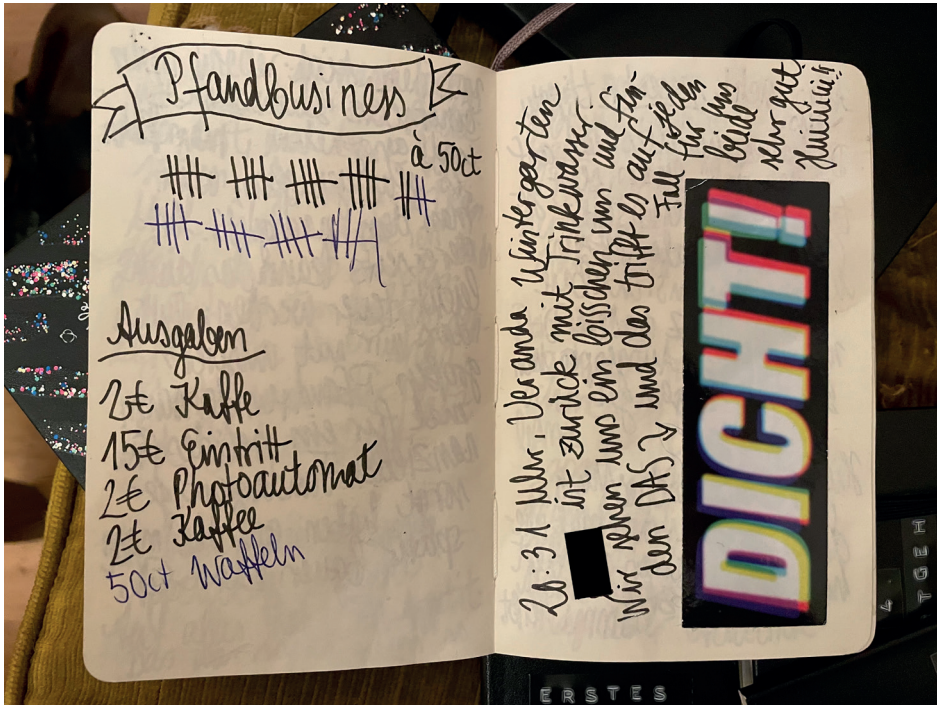 Pfandbusiness
à 50ct
Ausgaben
2€ Kaffe
15€ Eintritt
2€ Photoautomat
2€ Kaffee
50ct Waffeln
20:31 Uhr, Veranda Wintergarten
ist zurück mit Trinkwasser.
Wir sehen uns ein bisschen um und fin-
den DAS ↘ und das trifft es auf jeden
Fall für uns
beide
sehr gut
DICHT!
ERSTES
4
TGEH